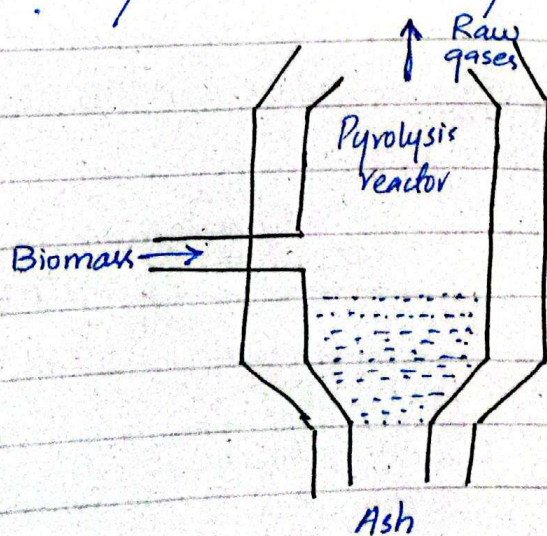 Raw
gases
Pyrolysis
reactor
Biomass
Ash